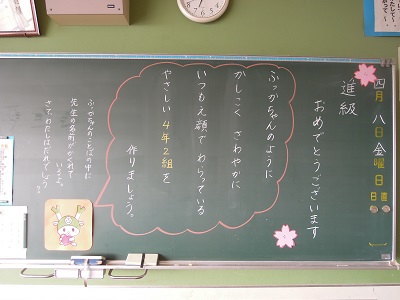 四月八日金曜日
日直
進級
おめでとうございます
ふっかちゃんのように
かしこく さわやかに
いつもえ顔で わらっている
やさしい 4年2組を
作りましょう。
ふっかちゃんのことばの中に
先生の名前がかくれて
います。
さて、わたしはだれでしょう